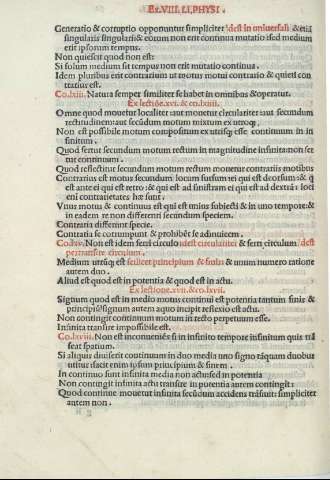 Ex.VIII.LI.PHYSI.
Generatio & corruptio opponuntur simpliciter .i. dest in vniuersali & etiā
singularis singulari& & eorum non erit continua mutatio ised medium
erit ipsorum tempus.
Non quiescit quod non est
Si solum medium sit tempus non erit mutatio continua.
Idem pluribus erit contrarium ut motus motui contrario & quieti con
trarius est.
Co.lxiii. Natura semper similiter se habet in omnibus & operatur.
Ex lectiōe.xvi. & co.lxiiii.
Omne quod mouetur localiter aut mouetur circulariter aut secundum
rectitudinem aut secūdum motum mixtum ex utroq
Non est possibile motum compositum ex utrisq esse continuum in in
finitum.
Quod fertur secundum motum rectum in magnitudine infinita non fer
tur continuum.
Quod reflectitur secundum motum rectum mouetur contrariis motibus
Contrarius est motus secundum locum sursum ei qui est deorsum & q
est ante ei qui est retro & qui est ad sinistram ei qui est ad dextrā : loci
eni contrarietates hæ sunt.
Vnus motus & continuus est qui est unius subiecti & in uno tempore &
in eadem re non differenti secundum speciem.
Contraria differunt specie.
Contraria se corrumpunt & prohibēt se adinuicem.
Co.lxv. Non est idem ferri circulo .idest circulariter & ferri circulum .idest
pertransire circulum.
Medium utrāq est scilicet principium & finis & unum numero ratione
autem duo.
Aliud est quod est in potentia & quod est in actu.
Ex lectione.xvii. & co.lxvii.
Signum quod est in medio motus continui est potentia tantum finis &
principiū signum autem a quo incipit reflexio est actu.
Non contingit continuum motum in recto perpetuum esse.
Infinita transire impossibile est.
Co.lxviii. Non est inconueniēs si in infinito tempore infinitum quis trā
seat spatium.
Si aliquis diuiserit continuum in duo media uno signo tāquam duobus
utitur ifacit enim ipsum principium & finem.
In continuo sunt infinita media non actu sed in potentia
Non contingit infinita actu transire in potentia autem contingit :
Quod continue mouetur infinita secūdum accidens trāsiuit : simpliciter
autem non.